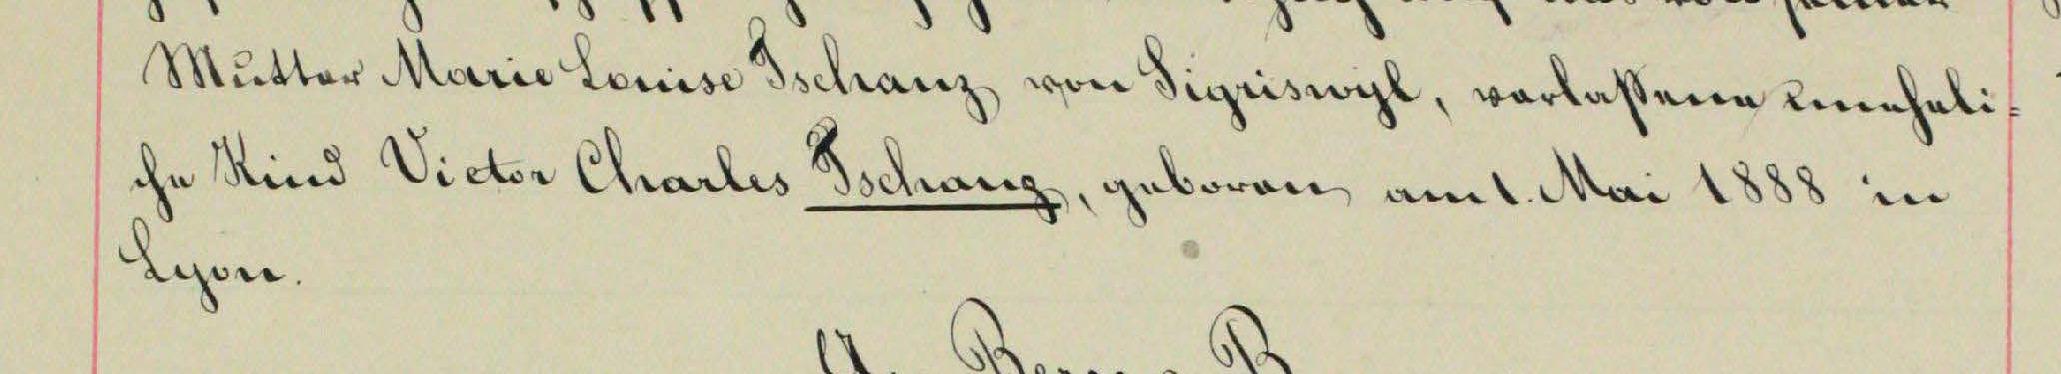 Mutter Marie Louise Tschanz von Sigriswyl, verlassene uneheli-
che Kind Victor Charles Tschanz, geboren am 1. Mai 1888 in
Lyon.